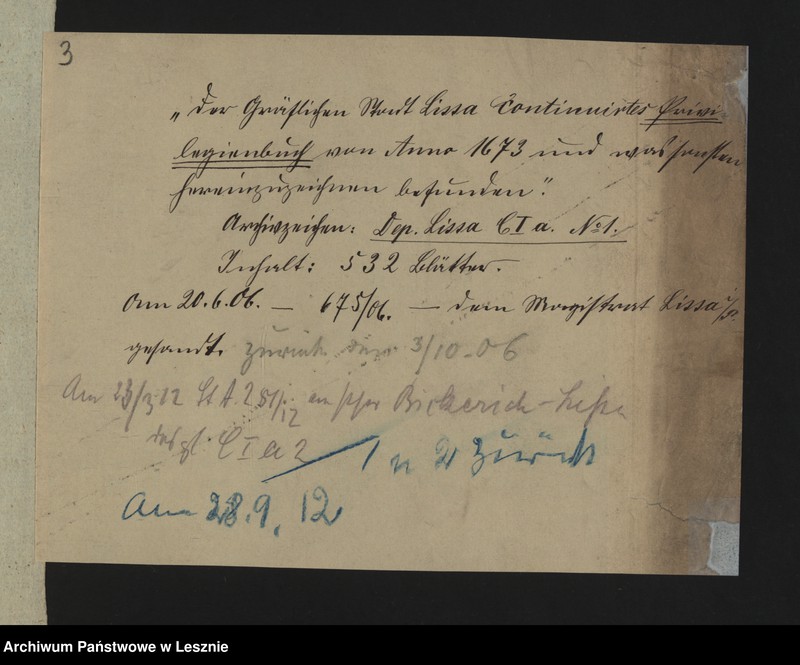 3
„Der Gräflichen Stadt Lissa Continuirtes Privi-
legienbuch von Anno 1673 und was sonsten
hereinzuzeichnen befunden“.
Archivzeichen: Dep. Lissa C I a. No 1.
Inhalt: 532 Blätter.
Am 20.6.06. — 675/06. — dem Magistrat Lissa i/P.
gesandt. zurück 3/10.06
Am 23/3 12 St A. 281/12 an Bickerich-Lissa
desgl. C I a 2
1 u 2 zurück
Am 28.9.12
Archiwum Państwowe w Lesznie